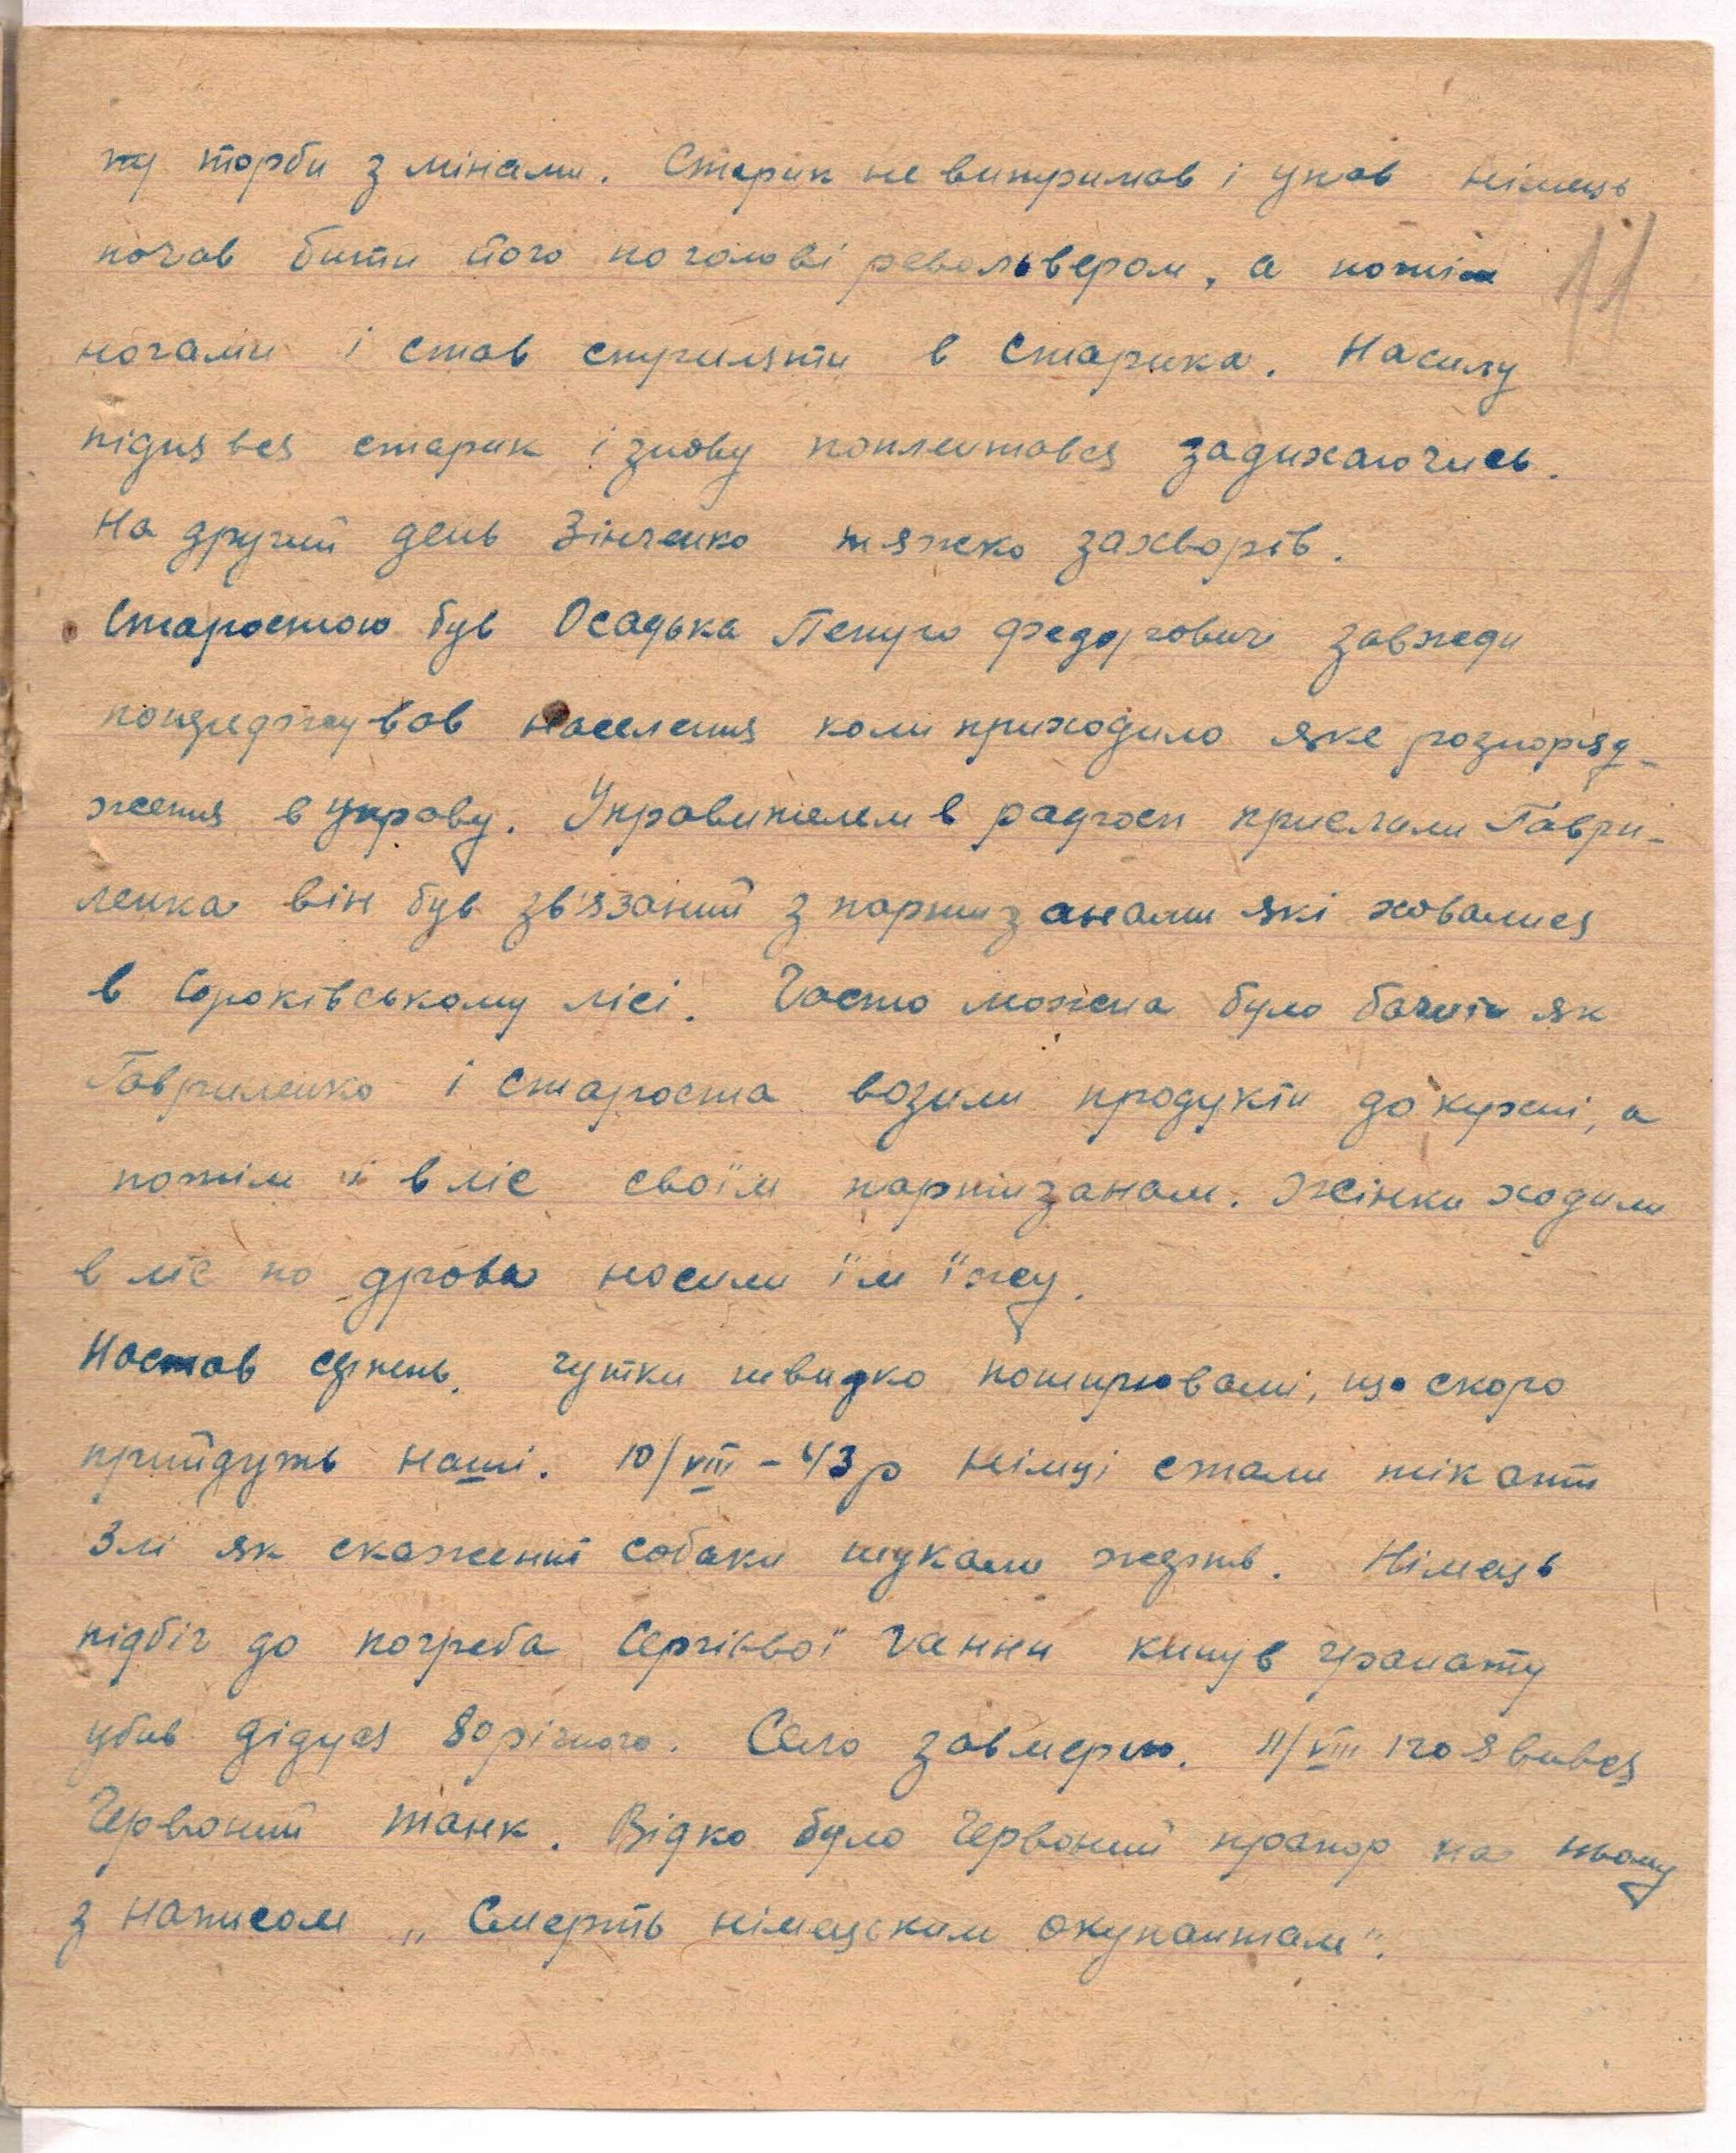 ну торби з мінами. Старик не витримав і упав німець
11
почав бити його по голові револьвером, а потім
ногами і став стриляти в старика. Насилу
піднявся старик і знову поплентався задихаючись.
На другий день Зінченко тяжко захворів.
Старостою був Осадька Петро Федорович завжди
попереджував населення коли приходило яке розпоряд-
ження в управу. Управителем в радгосп прислали Гаври-
ленка він був зв'язаний з партизанами які ховалися
в Сороківському лісі. Часто можна було бачити як
Гавриленко і староста возили продукти до кухні, а
потім й в ліс своїм партизанам. Жінки ходили
в ліс по дрова носили їм їжу.
Настав серпень. Чутки швидко поширювалі, що скоро
прийдуть наші. 10/VIII – 43 р німці стали тікати
Злі як скаженні собаки шукали жертв. Німець
підбіг до погреба Сергієвої Ганни кинув гранату
убив дідуся 80 річного. Село завмерло. 11/VIII появився
Червоний танк. Відко було Червоний прапор на ньому
з написом „Смерть німецьким окупантам".